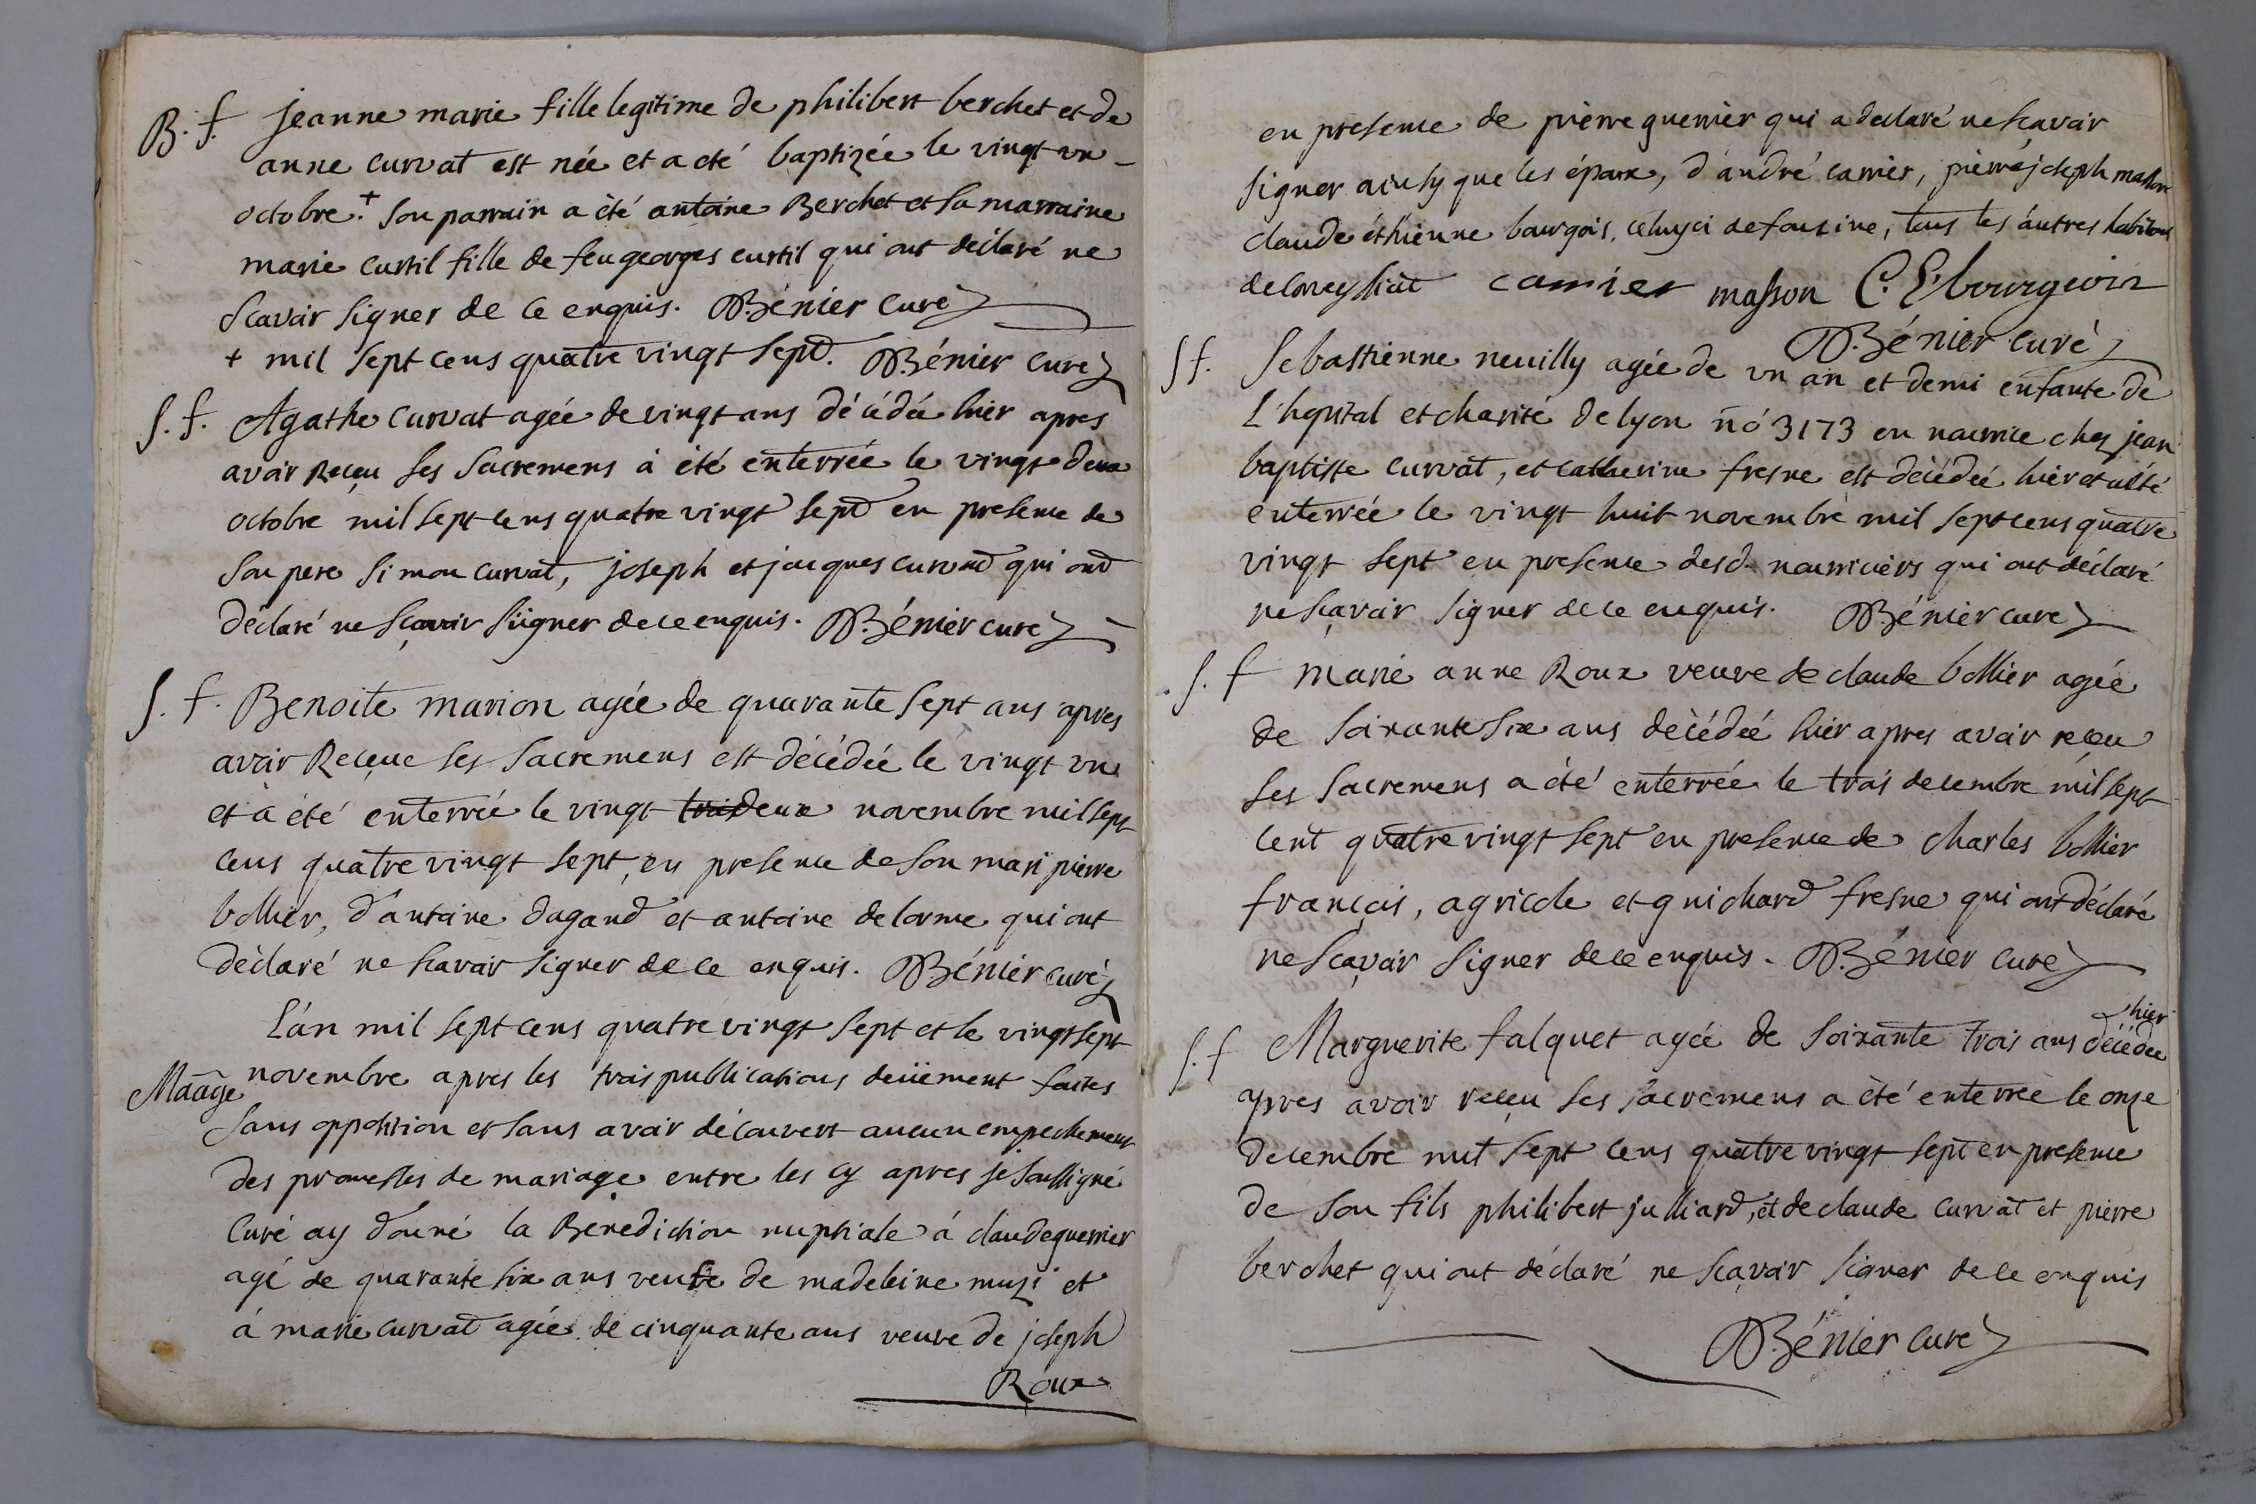 B. f. jeanne marie fille legitime de philibert berchet et de
anne curvat est née et a été baptizée le vingt un
octobre.+ son parrain a été antoine Berchet et sa marraine
marie curtil fille de feu georges curtil qui ont declaré ne
scavoir signer de ce enquis. Bénier curé
+ mil sept cens quatre vingt sept. Bénier curé
S. f. Agathe curvat agée de vingt ans décédée hier apres
avoir Reçeu ses sacremens a été enterrée le vingt deux
octobre mil sept cens quatre vingt sept en presence de
son pere simon curvat, joseph et jacques curvat qui ont
déclaré ne sçavoir siigner de ce enquis. Bénier curé
S. f. Benoite marion agée de quarante sept ans apres
avoir Reçeue ses sacremens est décédée le vingt un
et a été enterrée le vingt deux novembre mil sept
cens quatre vingt sept, en presence de son mari pierre
bollier, d'antoine dagand et antoine delorme qui ont
déclaré ne scavoir signer de ce enquis. Bénier curé
L'an mil sept cens quatre vingt sept et le vingt sept
Maāge novembre apres les trois publications deüement faites
sans opposition et sans avoir découvert aucun empechement
des promesses de mariage entre les cy apres je soussigné
curé ay donné la Benediction nuptiale á claude guerrier
agé de quarante six ans veufe de madeleine muzi et
á marie curvat agée de cinquante ans veuve de joseph
Roux
en presence de pierre guerrier qui a declaré ne scavoir
signer ainsy que les époux, d'andré carrier, pierre joseph masson
claude éthienne bourgois, celuy ci de foncine, tous les autres habitans
de lonceysliat carrier masson C. E. bourgeois
Bénier curé
S f. Sebastienne neuilly agée de un an et demi enfante de
L'hopital et charité de lyon nó 3173 en nourrice chez jean
baptiste curvat, et catherine fresne est décédée hier et a été
enterrée le vingt huit novembre mil sept cens quatre
vingt sept en presence desd. nourriciers qui ont déclaré
ne sçavoir signer de ce enquis. Bénier curé
S. f marie anne Roux veuve de claude bollier agée
de soixante six ans décédée hier apres avoir reçeu
ses sacremens a été enterrée le trois decembre mil sept
cent quatre vingt sept en presence de charles bollier
françois, agricole et guichard fresne qui ont déclaré
ne sçavoir signer de ce enquis. Bénier curé
hier
S. f Marguerite falquet agée de soixante trois ans décédée
apres avoir reçeu ses sacremens a été enterrée le onze
decembre mil sept cens quatre vingt sept en presence
de son fils philibert julliard, et de claude curvat et pierre
berchet qui ont déclaré ne sçavoir signer de ce enquis
Bénier curé